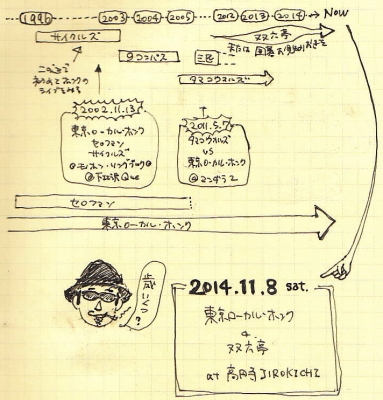 1996 2003 2004 2005 2012 2013 2014 Now
サイクルズ
双六亭
タコンパス
三民
または
タマコウォルズ
ここで
初めてホンクの
ライブをみる
2002.11.13
東京ローカル・ホンク
セロファン
サイクルズ
@下北沢Que
2011.5.7
タマコウォルズ
VS
東京ローカル・ホンク
@マンダラ2
セロファン
東京ローカル・ホンク
歳いくつ?
2014.11.8 sat.
東京ローカル・ホンク
&
双六亭
at 高円寺JIROKICHI